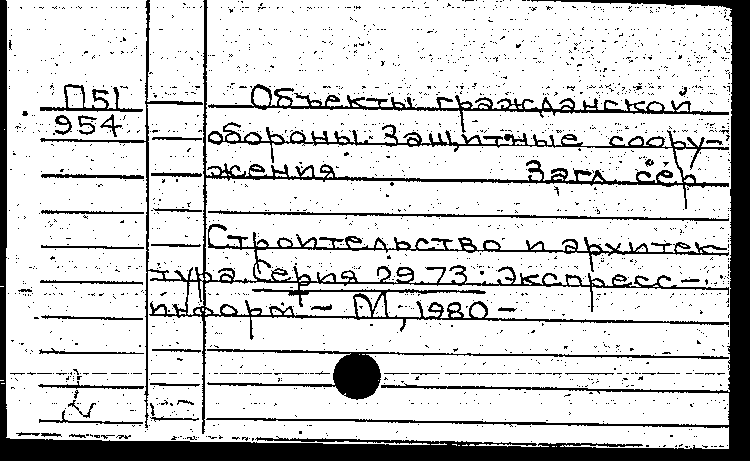 П51
954
Объекты гражданской
обороны. Защитные соору-
жения Загл. сер.
Строительство и архитек-
тура. Серия 29.73: Экспресс-
информ. – М., 1980 –
2